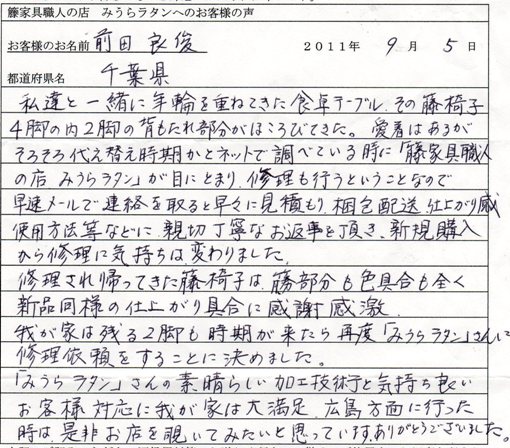 籐家具職人の店　みうらラタンへのお客様の声
お客様のお名前 前田 良俊　2011年 9月 5日
都道府県名 千葉県
私達と一緒に年輪を重ねてきた食卓テーブル、その藤椅子
4脚の内2脚の背もたれ部分がほころびてきた。愛着はあるが
そろそろ代え替え時期かとネットで調べている時に「藤家具職人
の店 みうらラタン」が目にとまり、修理も行うということなので
早速メールで連絡を取ると早々に見積もり、梱包配送、仕上がり感
使用方法等などに、親切丁寧なお返事を頂き、新規購入
から修理に気持ちは変わりました。
修理され帰ってきた藤椅子は、藤部分も色具合も全く
新品同様の仕上がり具合に感謝感激、
我が家は残る2脚も時期が来たら再度「みうらラタン」さんに
修理依頼をすることに決めました。
「みうらラタン」さんの素晴らしい加工技術と気持ち良い
お客様対応に我が家は大満足、広島方面に行った
時は是非お店を覗いてみたいと思っていますありがとうございました。